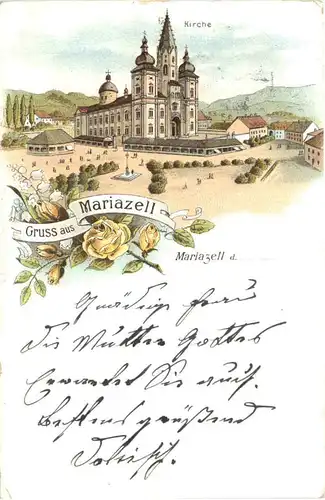 Kirche
Gruss aus Mariazell
Mariazell d.
Gnädige Frau
die Mutter Gottes
Erwartet Sie auch.
Bestens grüßend